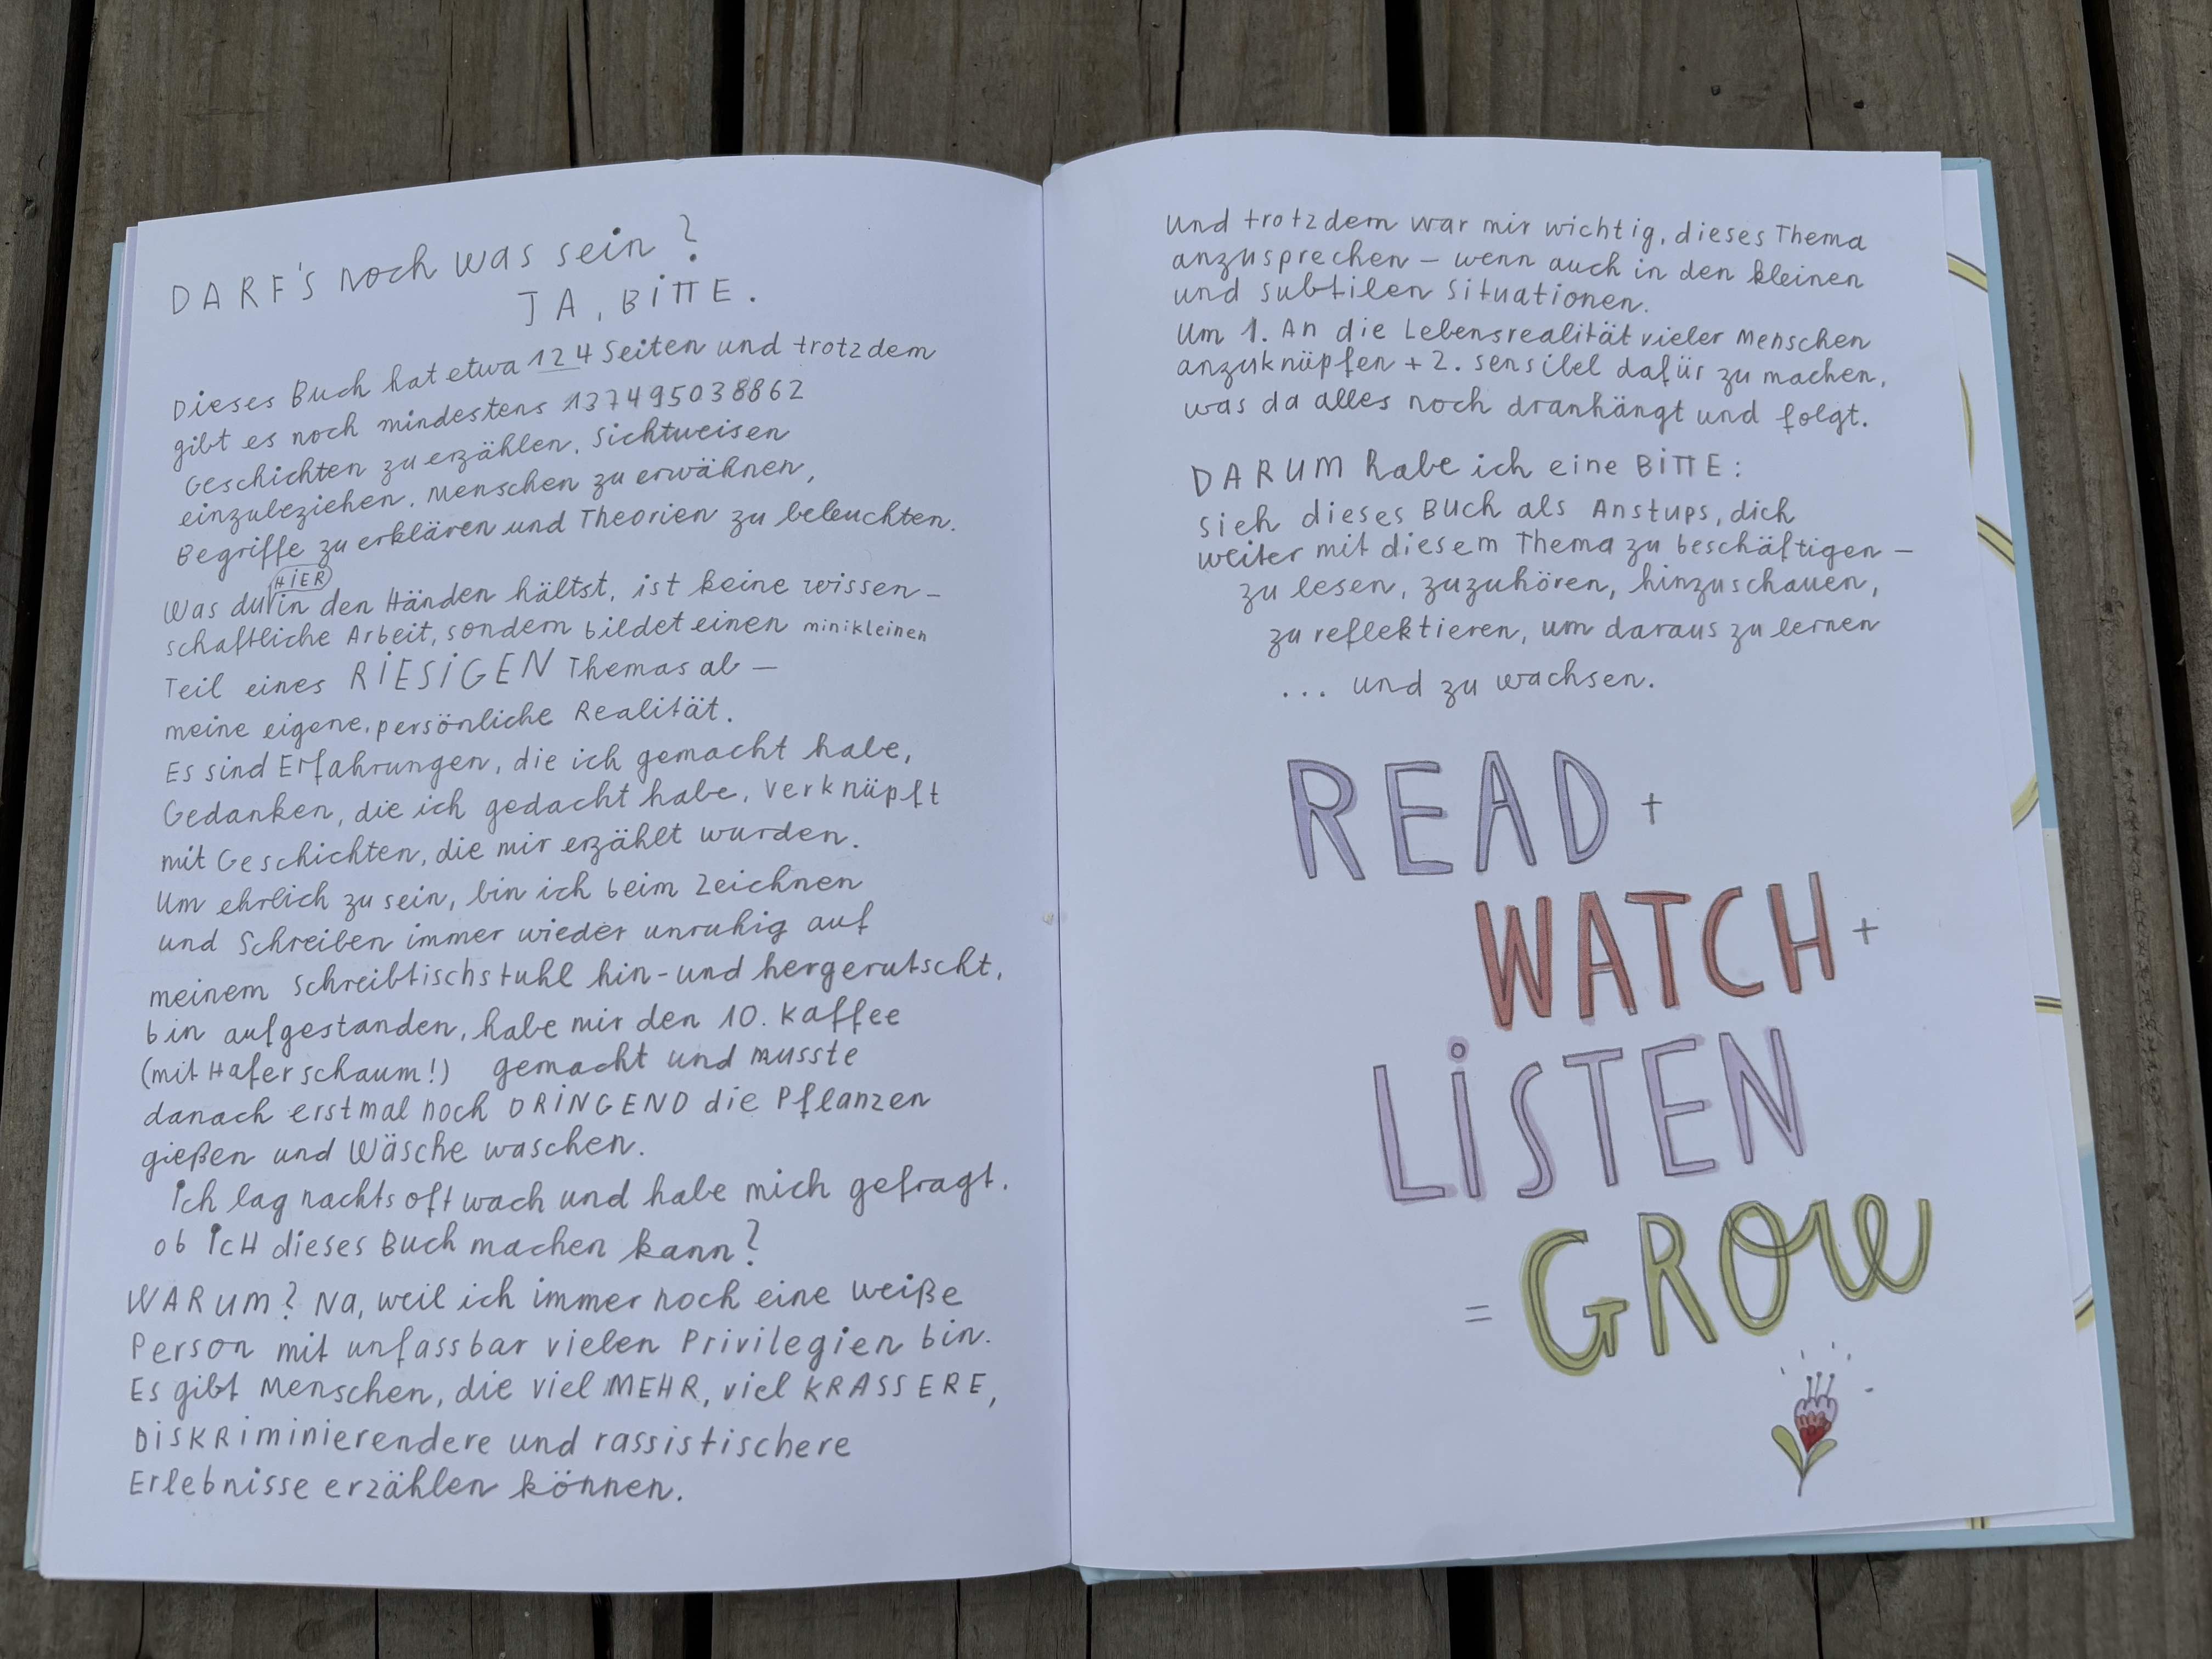 DARF'S noch was sein?
JA, BITTE.
Dieses Buch hat etwa 124 Seiten und trotzdem
gibt es noch mindestens 137495038862
Geschichten zu erzählen, Sichtweisen
einzubeziehen, Menschen zu erwähnen,
Begriffe zu erklären und Theorien zu beleuchten.
Was du HIER in den Händen hältst, ist keine wissen-
schaftliche Arbeit, sondern bildet einen minikleinen
Teil eines RIESIGEN Themas ab —
meine eigene, persönliche Realität.
Es sind Erfahrungen, die ich gemacht habe,
Gedanken, die ich gedacht habe, verknüpft
mit Geschichten, die mir erzählt wurden.
Um ehrlich zu sein, bin ich beim Zeichnen
und Schreiben immer wieder unruhig auf
meinem Schreibtischstuhl hin- und hergerutscht,
bin aufgestanden, habe mir den 10. Kaffee
(mit Haferschaum!) gemacht und musste
danach erstmal noch DRINGEND die Pflanzen
gießen und Wäsche waschen.
Ich lag nachts oft wach und habe mich gefragt,
ob ICH dieses Buch machen kann?
WARUM? Na, weil ich immer noch eine weiße
Person mit unfassbar vielen Privilegien bin.
Es gibt Menschen, die viel MEHR, viel KRASSERE,
DISKRiminierendere und rassistischere
Erlebnisse erzählen können.
Und trotzdem war mir wichtig, dieses Thema
anzusprechen — wenn auch in den kleinen
und subtilen Situationen.
Um 1. An die Lebensrealität vieler Menschen
anzuknüpfen + 2. sensibel dafür zu machen,
was da alles noch dranhängt und folgt.
DARUM habe ich eine BITTE:
Sieh dieses Buch als Anstups, dich
weiter mit diesem Thema zu beschäftigen —
zu lesen, zuzuhören, hinzuschauen,
zu reflektieren, um daraus zu lernen
... und zu wachsen.
READ +
WATCH +
LISTEN
= GROW